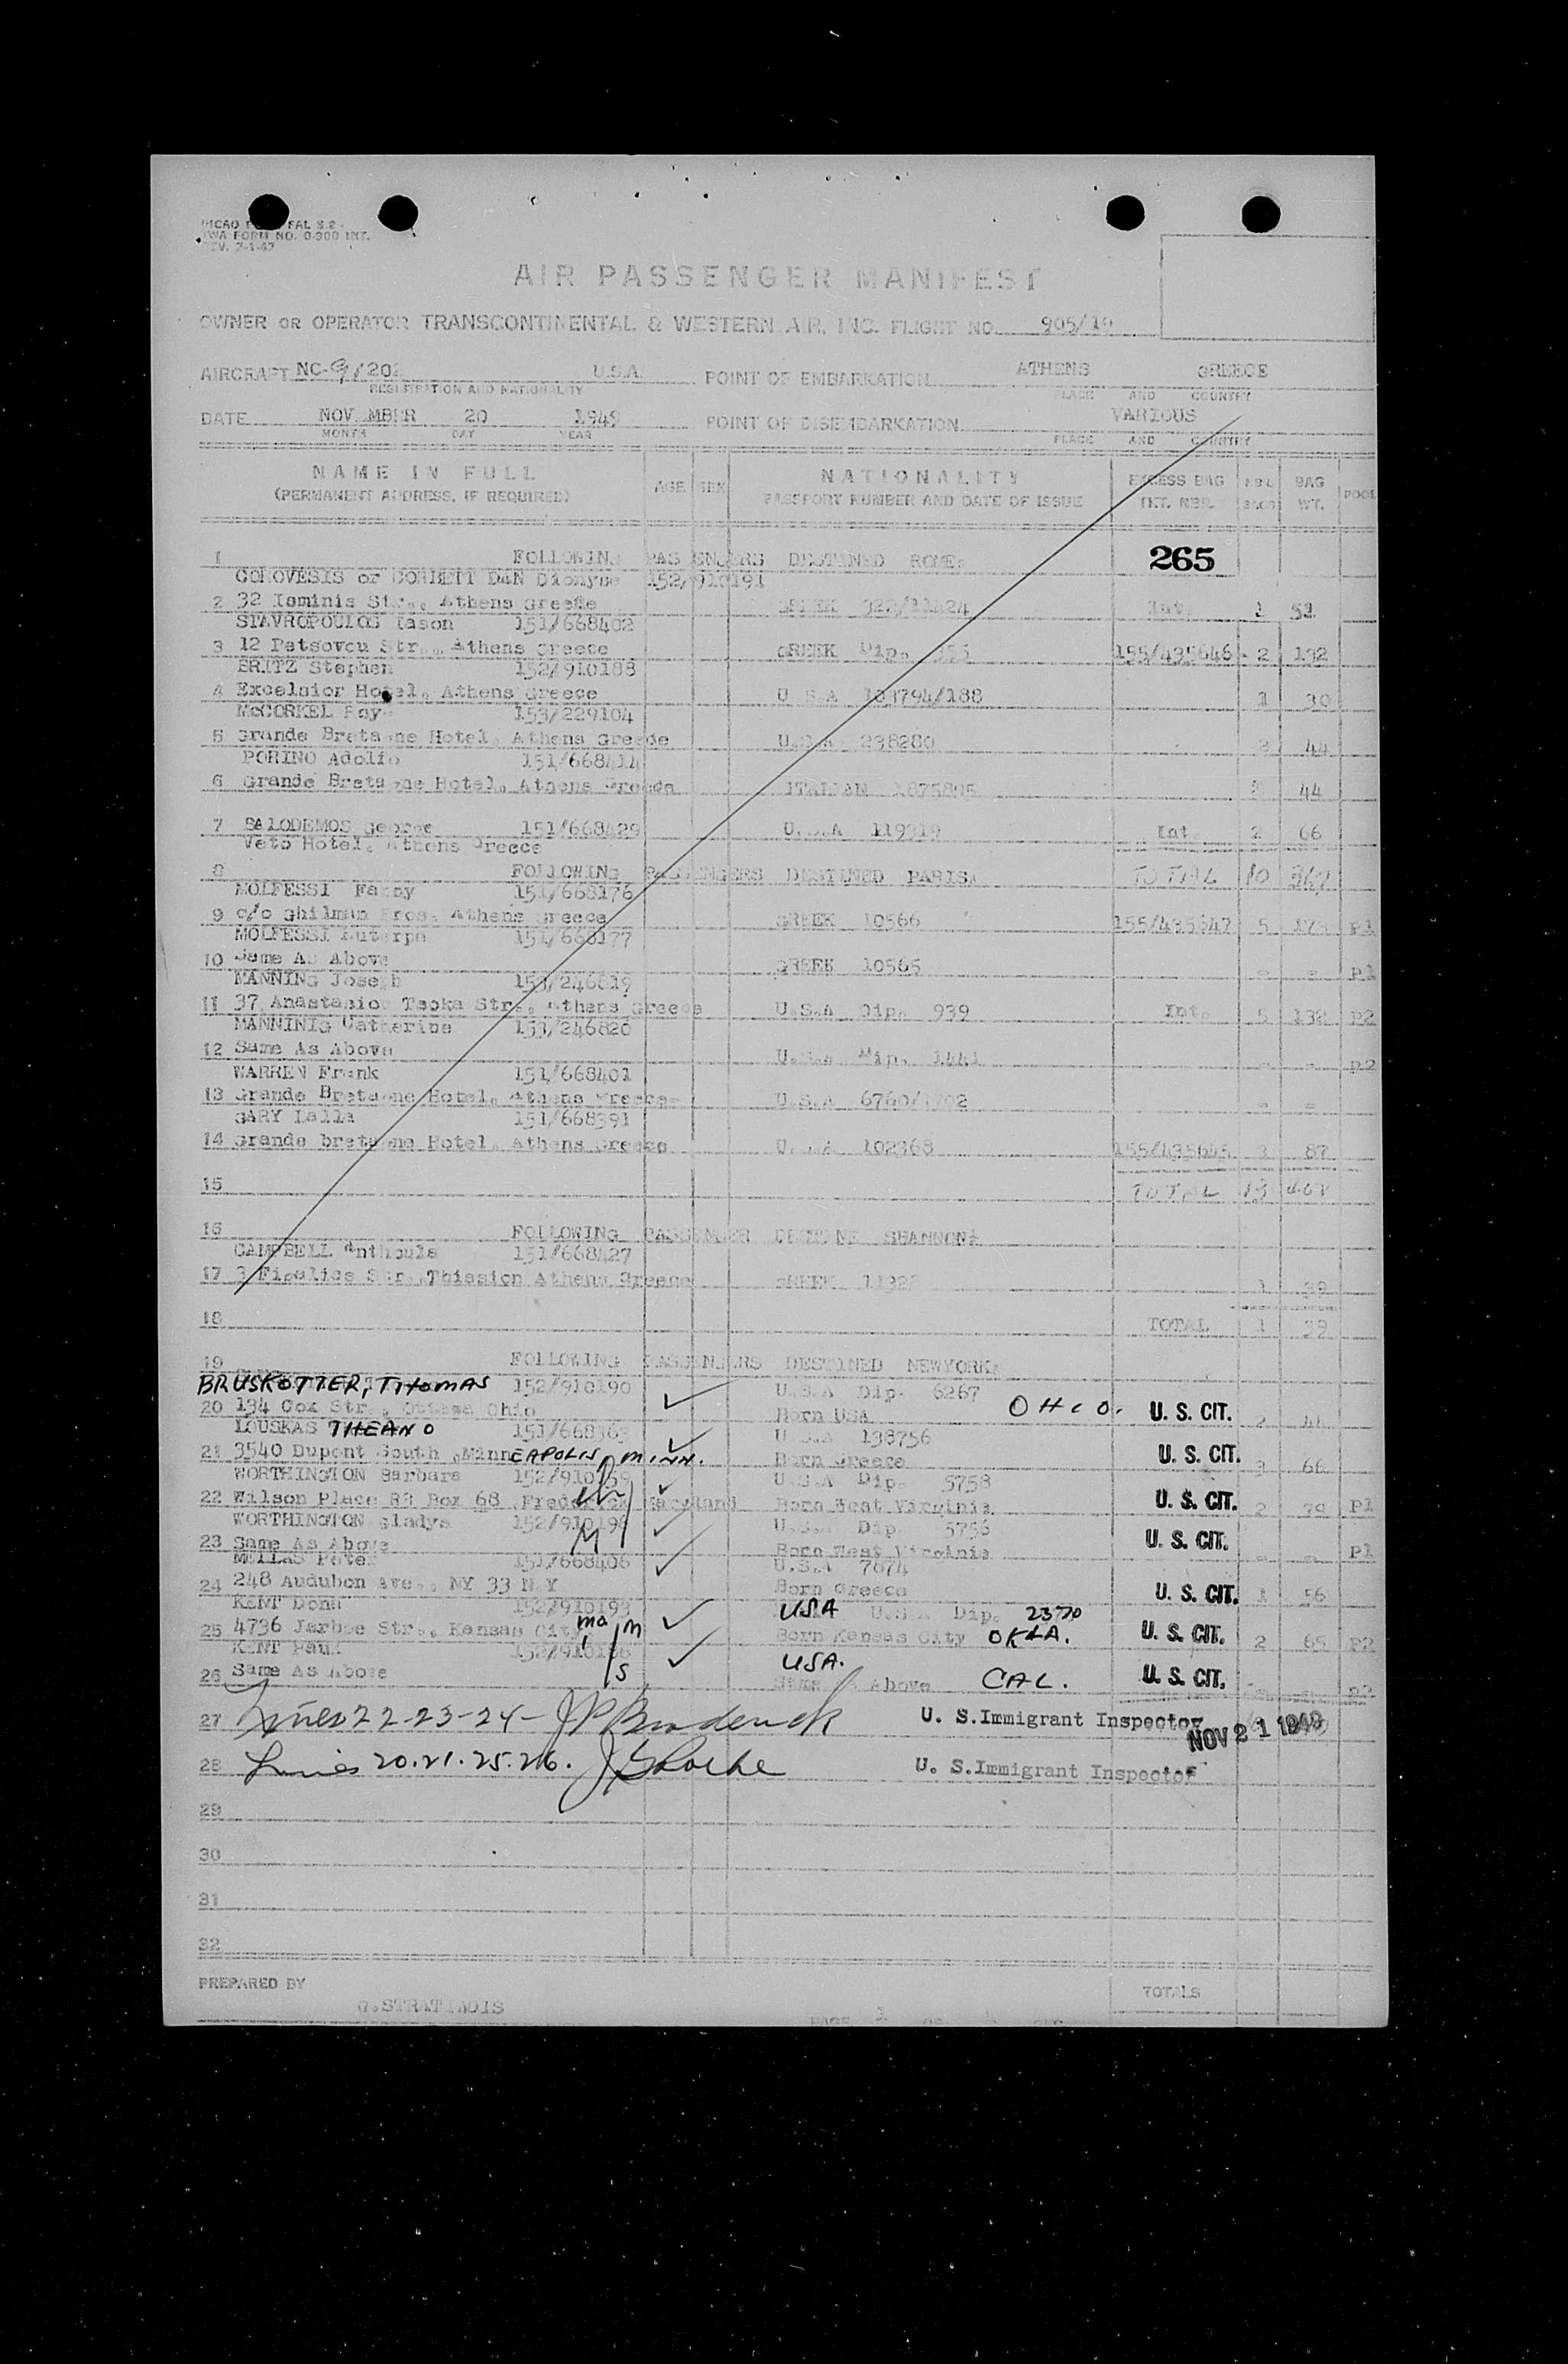 FAL S.2
TWA FORM NO. 0-900 INT.
REV. 7-1-47
AIR PASSENGER MANIFEST
OWNER OR OPERATOR TRANSCONTINENTAL & WESTERN AIR, INC. FLIGHT NO. 905/19
AIRCRAFT U.S.A POINT OF EMBARKATION ATHENS GREECE
REGISTRATION AND NATIONALITY PLACE AND COUNTRY
DATE NOV MBER 20 1949 POINT OF DISEMBARKATION VARIOUS
MONTH DAY YEAR PLACE AND COUNTRY
NAME IN FULL AGE SEX NATIONALITY EXCESS BAG NBR BAG POOL
(PERMANENT ADDRESS, IF REQUIRED) PASSPORT NUMBER AND DATE OF ISSUE TKT. NBR. BAGS WT.
1 FOLLOWING PAS ENGERS DESTINED ROME 265
COROVESIS or CORBETT DAN Dionyse 152/910191
2 32 Isminis Str., Athens Greece GREEK Int. 1 51
STAVROPOULOS Iason 151/668402
3 12 Patsovou Str., Athens Greece GREEK Dip. 155/435646 - 2 132
BRITZ Stephen 152/910188
4 Excelsior Hotel, Athens Greece U.S.A 103794/188 1 30
McCORKEL Roy 153/229104
5 Grande Breta ne Hotel, Athens Greece U.S.A 238280 2 44
PORINO Adolfo 151/668414
6 Grande Breta ne Hotel, Athens Greece ITALIAN 44
7 BALODEMOS George 151/668429 U.S.A 119319 Int. 2 66
Veto Hotel, Athens Greece
8 FOLLOWING PASSENGERS DESTINED PARIS TOTAL 10 367
MOLFESSI Fanny 151/668176
9 c/o Ghilman Bros. Athens Greece GREEK 10566 155/435647 5 173 P1
MOLFESSI Euterpe 151/668177
10 Same As Above GREEK 10565 - - P1
MANNING Joseph 153/246819
11 37 Anastasiou Tsoka Str., Athens Greece U.S.A Dip. 939 Int. 5 132 P2
MANNINIG Catherine 153/246820
12 Same As Above U.S.A Dip. 1441 - - P2
WARREN Frank 151/668401
13 Grande Breta ne Hotel, Athens Greece U.S.A - -
GARY Lalla 151/668391
14 Grande breta ne Hotel, Athens Greece U.S.A 102368 155/435645 3 87
15 TOTAL 13
16 FOLLOWING PASSENGER DESTINE SHANNON
CAMPBELL Anthoula 151/668427
17 3 Str., Thission Athens Greece GREEK 1 39
18 TOTAL 1 39
19 FOLLOWING PASSENGERS DESTINED NEWYORK
BRUSKOTTER, THOMAS 152/910190 U.S.A Dip. 6267
20 134 Cox Str., Ottawa Ohio Born USA OHIO. U. S. CIT. 2 44
LOUSKAS THEANO 151/668363 U.S.A 138756
21 3540 Dupont South ,MinnEAPOLIS MINN. Born Greece U. S. CIT. 3 66
WORTHINGTON Barbara 152/910159 U.S.A Dip. 5758
22 Wilson Place R3 Box 68 ,Frederick Maryland Born West Virginia U. S. CIT. 2 79 P1
WORTHINGTON Gladys 152/910196 M U.S.A Dip 5756
23 Same As Above Born West Virginia U. S. CIT. - - P1
Peter 151/668406 U.S.A 7874
24 248 Audubon Ave., NY 33 N.Y Born Greece U. S. CIT. 1 56
KENT Dona 152/910193 USA U.S.A Dip. 2370
25 4736 Jarboe Str., Kansas City mo M Born Kansas City OKLA. U. S. CIT. 2 65 P2
KENT Paul USA.
26 Same As Above S Same As Above CAL. U. S. CIT. - - P2
27 Lines 22-23-24- JP Broderick U. S.Immigrant Inspector NOV 21 1949
28 Lines 20.21.25.26. U. S.Immigrant Inspector
29
30
31
32
PREPARED BY TOTALS
G.STRATIADIS
PAGE 1